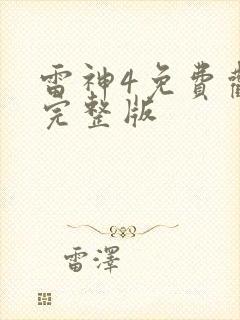 雷神4免費
完整版
雷澤